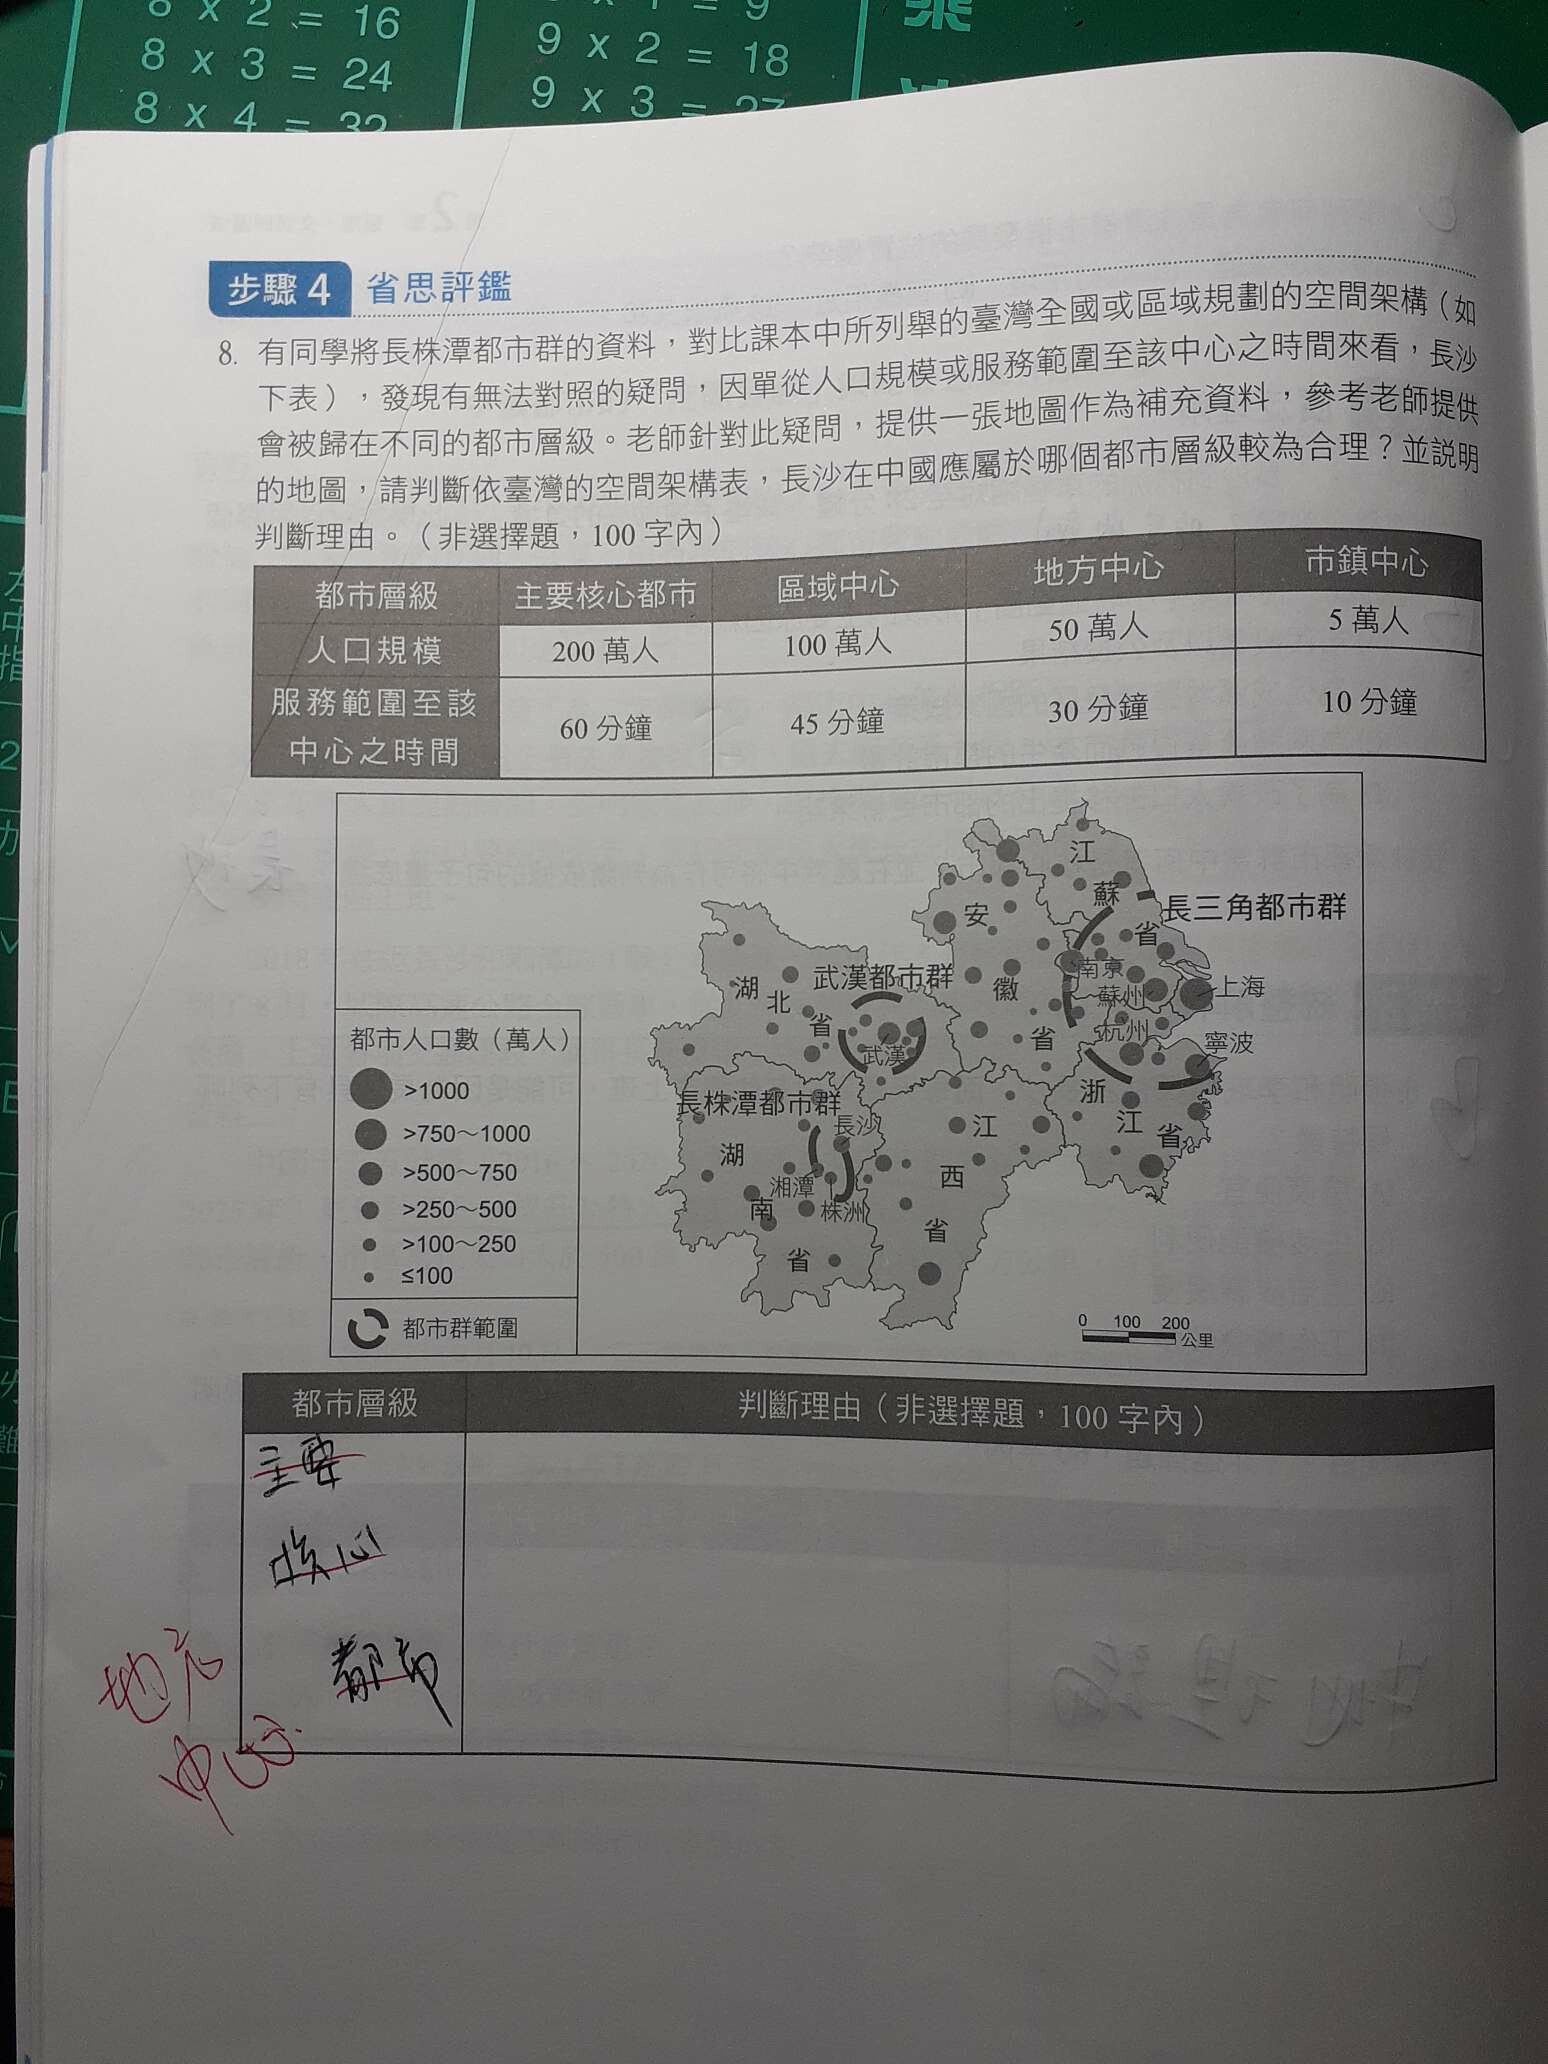 8 x 2 = 16
8 x 3 = 24
8 x 4 = 32
9 x 2 = 18
9 x 3 = 27
步驟 4 省思評鑑
8. 有同學將長株潭都市群的資料，對比課本中所列舉的臺灣全國或區域規劃的空間架構（如
下表），發現有無法對照的疑問，因單從人口規模或服務範圍至該中心之時間來看，長沙
會被歸在不同的都市層級。老師針對此疑問，提供一張地圖作為補充資料，參考老師提供
的地圖，請判斷依臺灣的空間架構表，長沙在中國應屬於哪個都市層級較為合理？並說明
判斷理由。（非選擇題，100 字內）
都市層級 主要核心都市 區域中心 地方中心 市鎮中心
人口規模 200 萬人 100 萬人 50 萬人 5 萬人
服務範圍至該
中心之時間 60 分鐘 45 分鐘 30 分鐘 10 分鐘
江
蘇
省
長三角都市群
安
徽
省
南京
蘇州
上海
杭州
寧波
湖
北
省
武漢都市群
武漢
浙
江
省
長株潭都市群
長沙
湖
南
省
湘潭
株洲
江
西
省
都市人口數（萬人）
>1000
>750～1000
>500～750
>250～500
>100～250
≤100
都市群範圍
0 100 200
公里
都市層級 判斷理由（非選擇題，100 字內）
主要
核心
都市
地方
中心